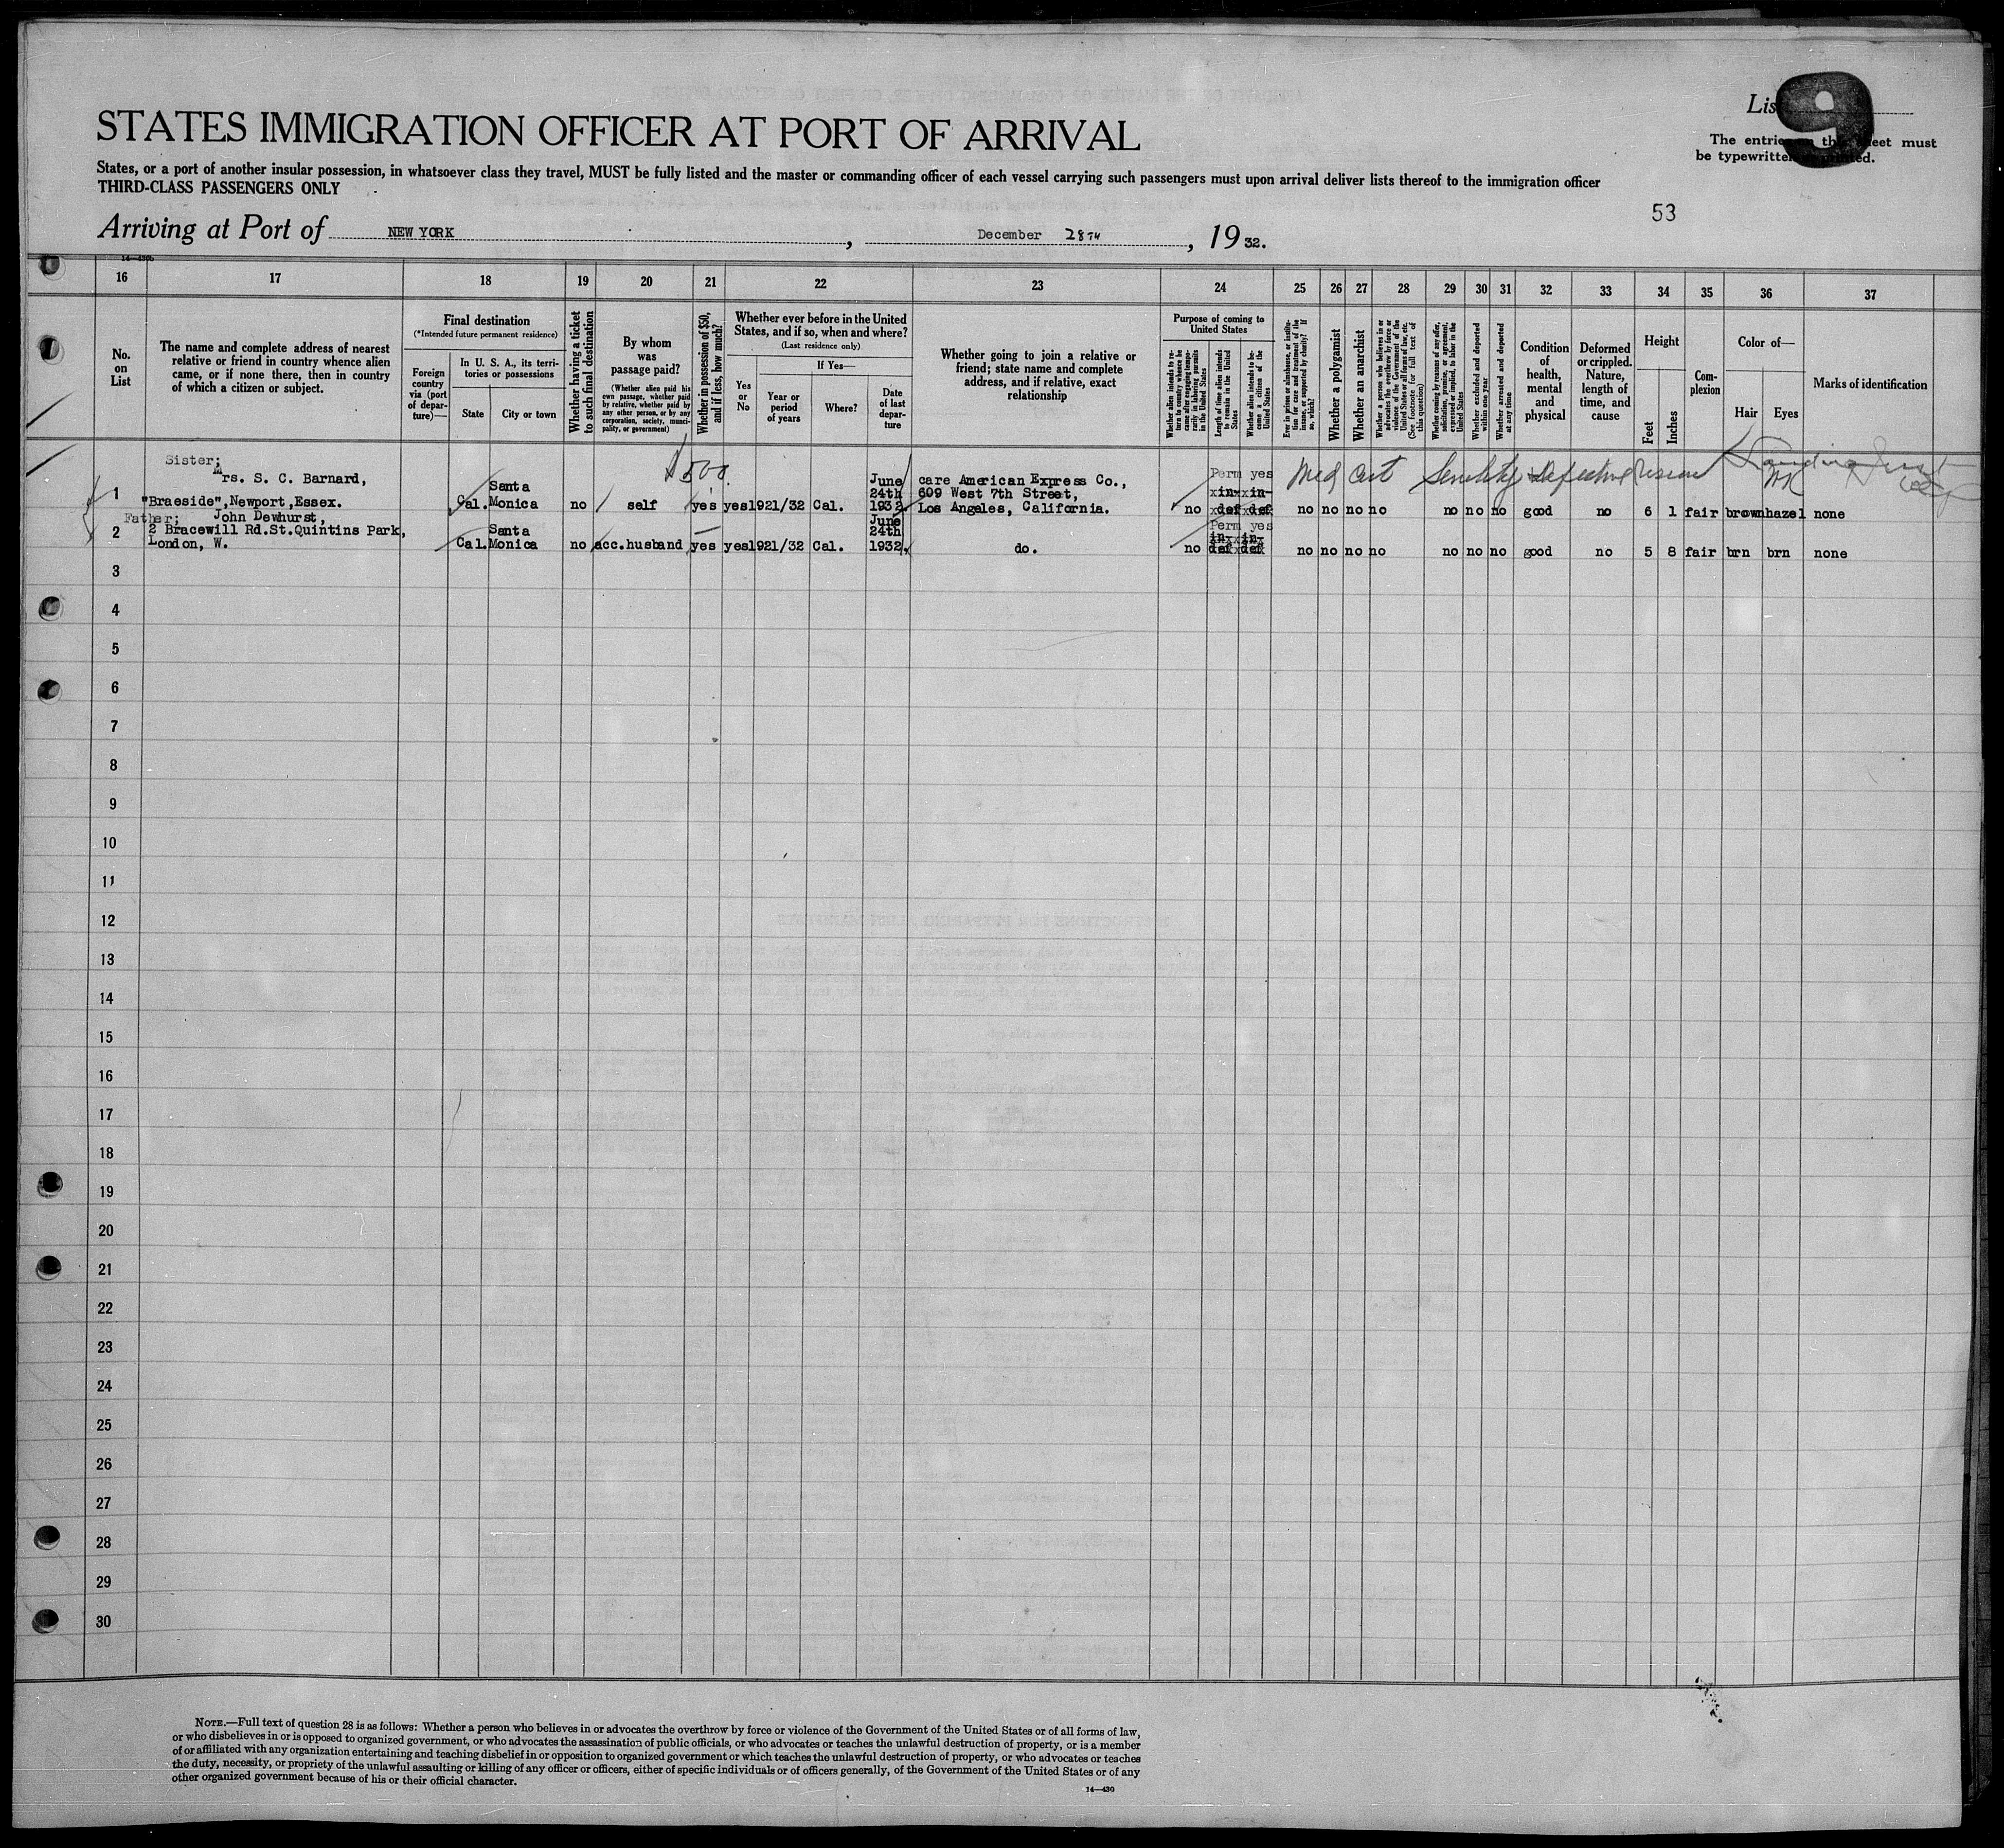 STATES IMMIGRATION OFFICER AT PORT OF ARRIVAL
Lis
9
The entries
sheet must
be typewritten
States, or a port of another insular possession, in whatsoever class they travel, MUST be fully listed and the master or commanding officer of each vessel carrying such passengers must upon arrival deliver lists thereof to the immigration officer
THIRD-CLASS PASSENGERS ONLY
53
Arriving at Port of NEW YORK, December 28TH, 1932.
16 17 18 19 20 21 22 23 24 25 26 27 28 29 30 31 32 33 34 35 36 37
No. on List
The name and complete address of nearest relative or friend in country whence alien came, or if none there, then in country of which a citizen or subject.
Final destination
(*Intended future permanent residence)
Foreign country via (port of departure)—
In U. S. A., its territories or possessions
State
City or town
Whether having a ticket to such final destination
By whom was passage paid?
(Whether alien paid his own passage, whether paid by relative, whether paid by any other person, or by any corporation, society, municipality, or government)
Whether in possession of $50, and if less, how much?
Whether ever before in the United States, and if so, when and where?
(Last residence only)
Yes or No
If Yes—
Year or period of years
Where?
Date of last departure
Whether going to join a relative or friend; state name and complete address, and if relative, exact relationship
Purpose of coming to United States
Whether alien intends to return to country whence he came after engaging temporarily in laboring pursuits in the United States
Length of time alien intends to remain in the United States
Whether alien intends to become a citizen of the United States
Ever in prison or almshouse, or institution for care and treatment of the insane, or supported by charity? If so, which?
Whether a polygamist
Whether an anarchist
Whether a person who believes in or advocates the overthrow by force or violence of the Government of the United States or all forms of law, etc. (See footnote for full text of this question)
Whether coming by reasons of any offer, solicitation, promise, or agreement, expressed or implied, to labor in the United States
Whether excluded and deported within one year
Whether arrested and deported at any time
Condition of health, mental and physical
Deformed or crippled. Nature, length of time, and cause
Height
Feet
Inches
Complexion
Color of—
Hair
Eyes
Marks of identification
$500.
Med Cert Senility Defective Vision
Sister;
Mrs. S. C. Barnard,
1 "Braeside",Newport,Essex. Cal. Santa Monica no self yes yes 1921/32 Cal. June 24th 1932. care American Express Co., 609 West 7th Street, Los Angeles, California. no Perm yes no no no no no no no good no 6 1 fair brown hazel none
Father; John Dewhurst,
2 2 Bracewill Rd.St.Quintins Park, London, W. Cal. Santa Monica no acc.husband yes yes 1921/32 Cal. June 24th 1932. do. no Perm yes no no no no no no no good no 5 8 fair brn brn none
3
4
5
6
7
8
9
10
11
12
13
14
15
16
17
18
19
20
21
22
23
24
25
26
27
28
29
30
NOTE.—Full text of question 28 is as follows: Whether a person who believes in or advocates the overthrow by force or violence of the Government of the United States or of all forms of law,
or who disbelieves in or is opposed to organized government, or who advocates the assassination of public officials, or who advocates or teaches the unlawful destruction of property, or is a member
of or affiliated with any organization entertaining and teaching disbelief in or opposition to organized government or which teaches the unlawful destruction of property, or who advocates or teaches
the duty, necessity, or propriety of the unlawful assaulting or killing of any officer or officers, either of specific individuals or of officers generally, of the Government of the United States or of any
other organized government because of his or their official character.
14—430